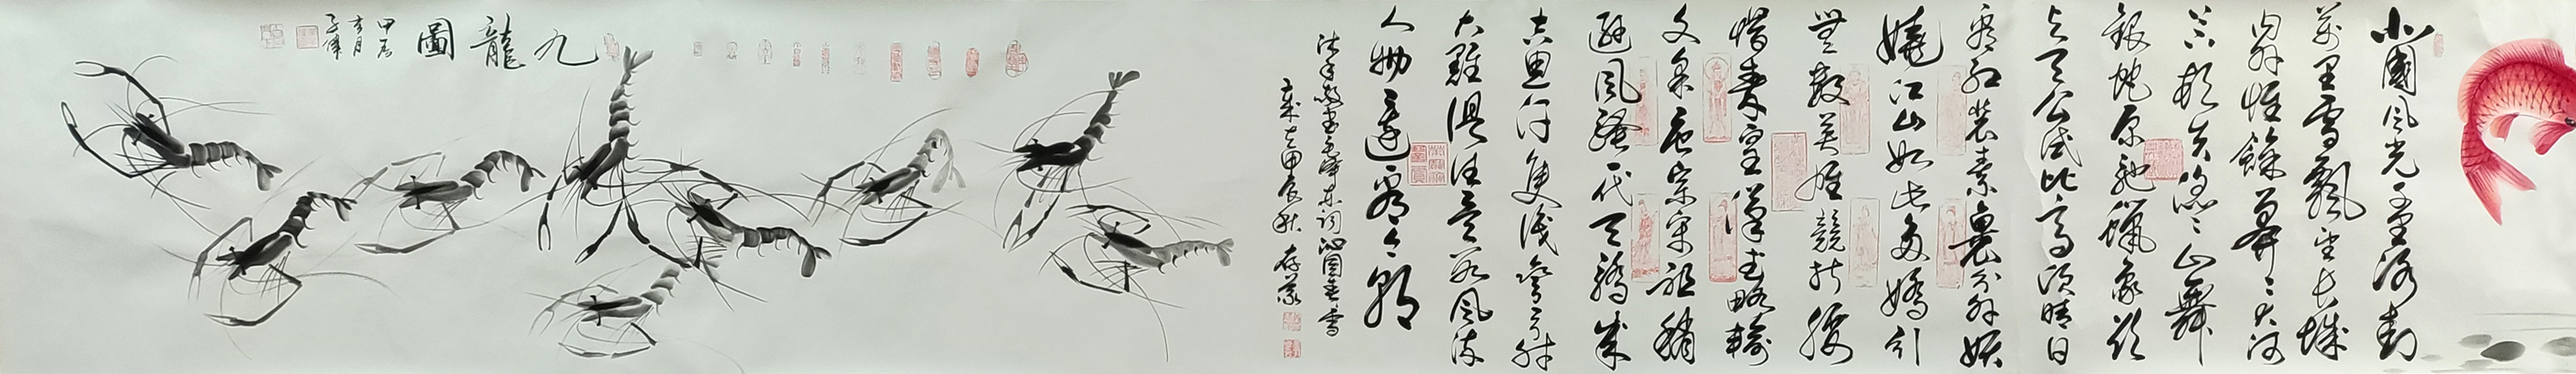 北國風光千里冰封
萬里雪飄望長城
内外惟餘莽莽大河
上下頓失滔滔山舞
銀蛇原馳蠟象欲
與天公試比高須晴日
看紅裝素裹分外妖
嬈江山如此多嬌引
無數英雄競折腰
惜秦皇漢武略輸
文采唐宗宋祖稍
遜風騷一代天驕成
吉思汗隻識彎弓射
大雕俱往矣數風流
人物還看今朝
沐手敬書毛澤東詞沁園春雪
歲在甲辰秋
九龍圖
甲辰